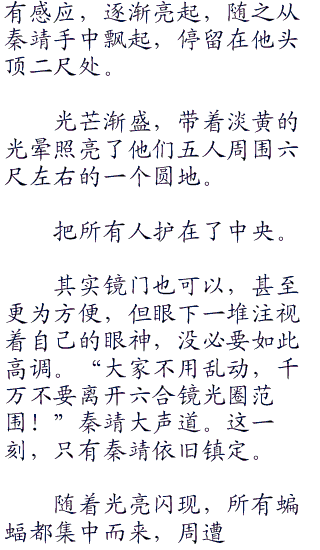 有感应，逐渐亮起，随之从
秦靖手中飘起，停留在他头
顶二尺处。
光芒渐盛，带着淡黄的
光晕照亮了他们五人周围六
尺左右的一个圆地。
把所有人护在了中央。
其实镜门也可以，甚至
更为方便，但眼下一堆注视
着自己的眼神，没必要如此
高调。“大家不用乱动，千
万不要离开六合镜光圈范
围！”秦靖大声道。这一
刻，只有秦靖依旧镇定。
随着光亮闪现，所有蝙
蝠都集中而来，周遭